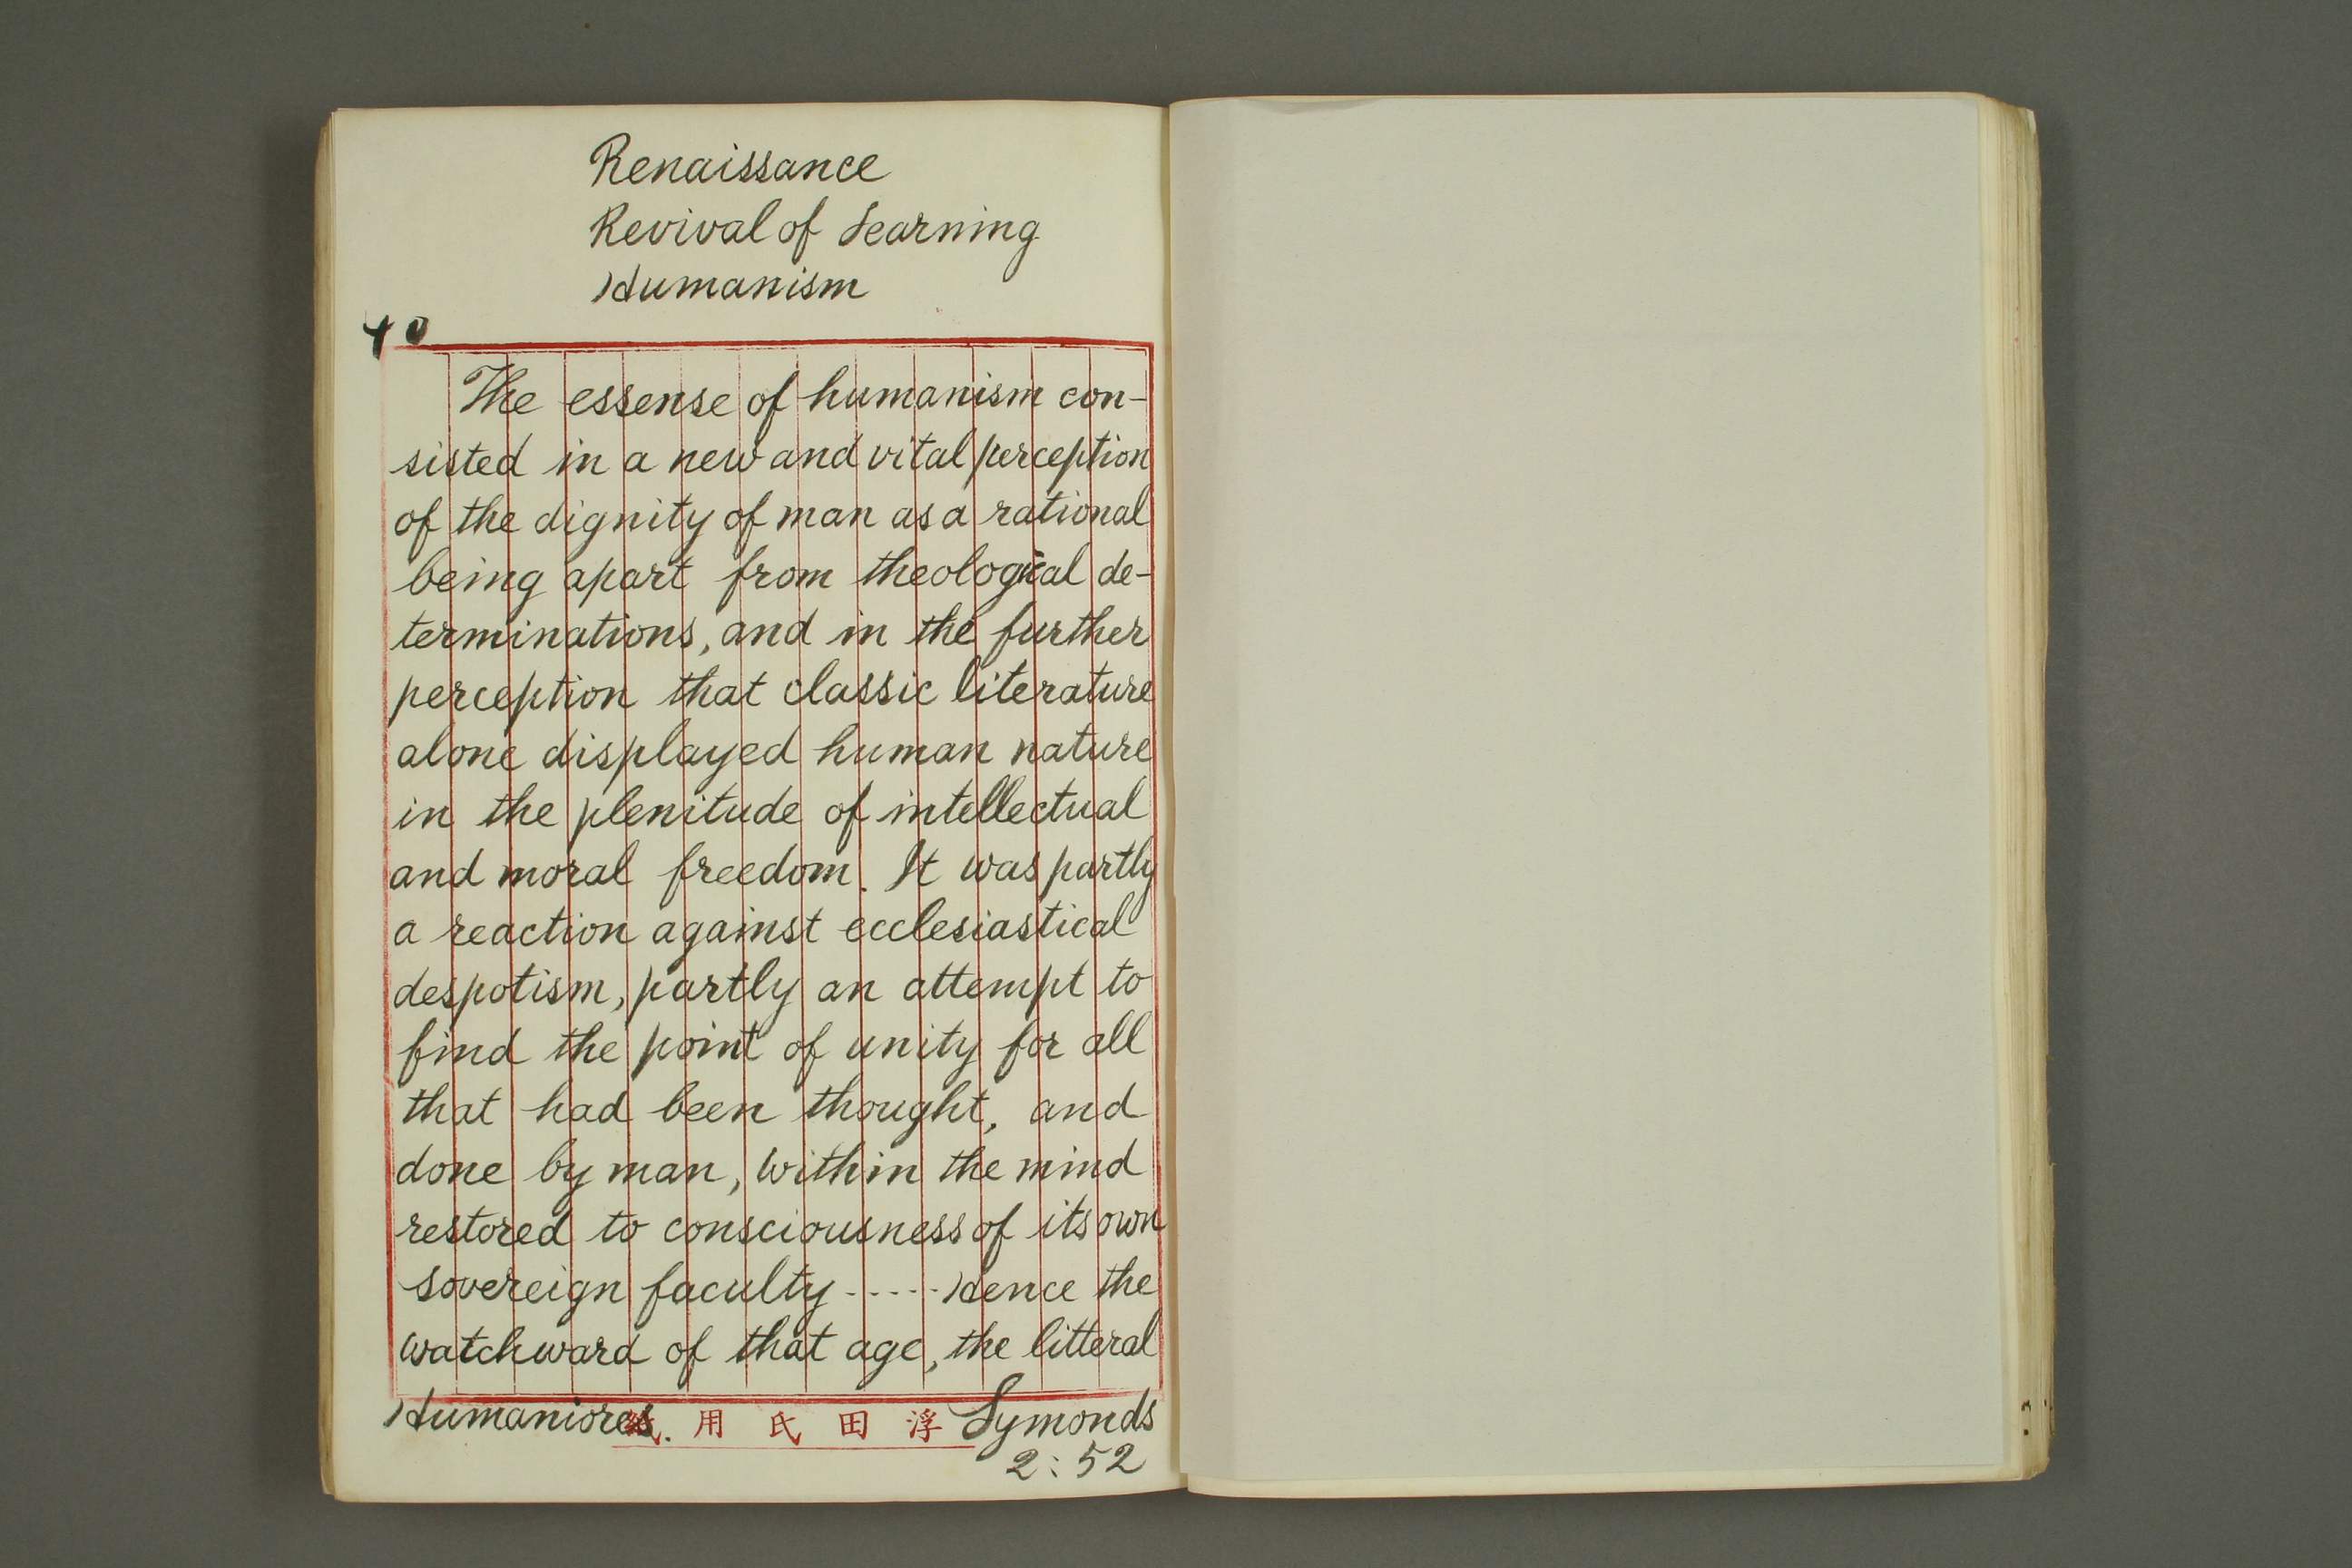 Renaissance
Revival of Learning
Humanism
40
The essense of humanism con-
sisted in a new and vital perception
of the dignity of man as a rational
being apart from theological de-
terminations, and in the further
perception that classic literature
alone displayed human nature
in the plenitude of intellectual
and moral freedom. It was partly
a reaction against ecclesiastical
despotism, partly an attempt to
find the point of unity for all
that had been thought, and
done by man, within the mind
restored to consciousness of its own
sovereign faculty ----- Hence the
watchward of that age, the litteral
Humaniores. Symonds
浮田氏用紙
2:52